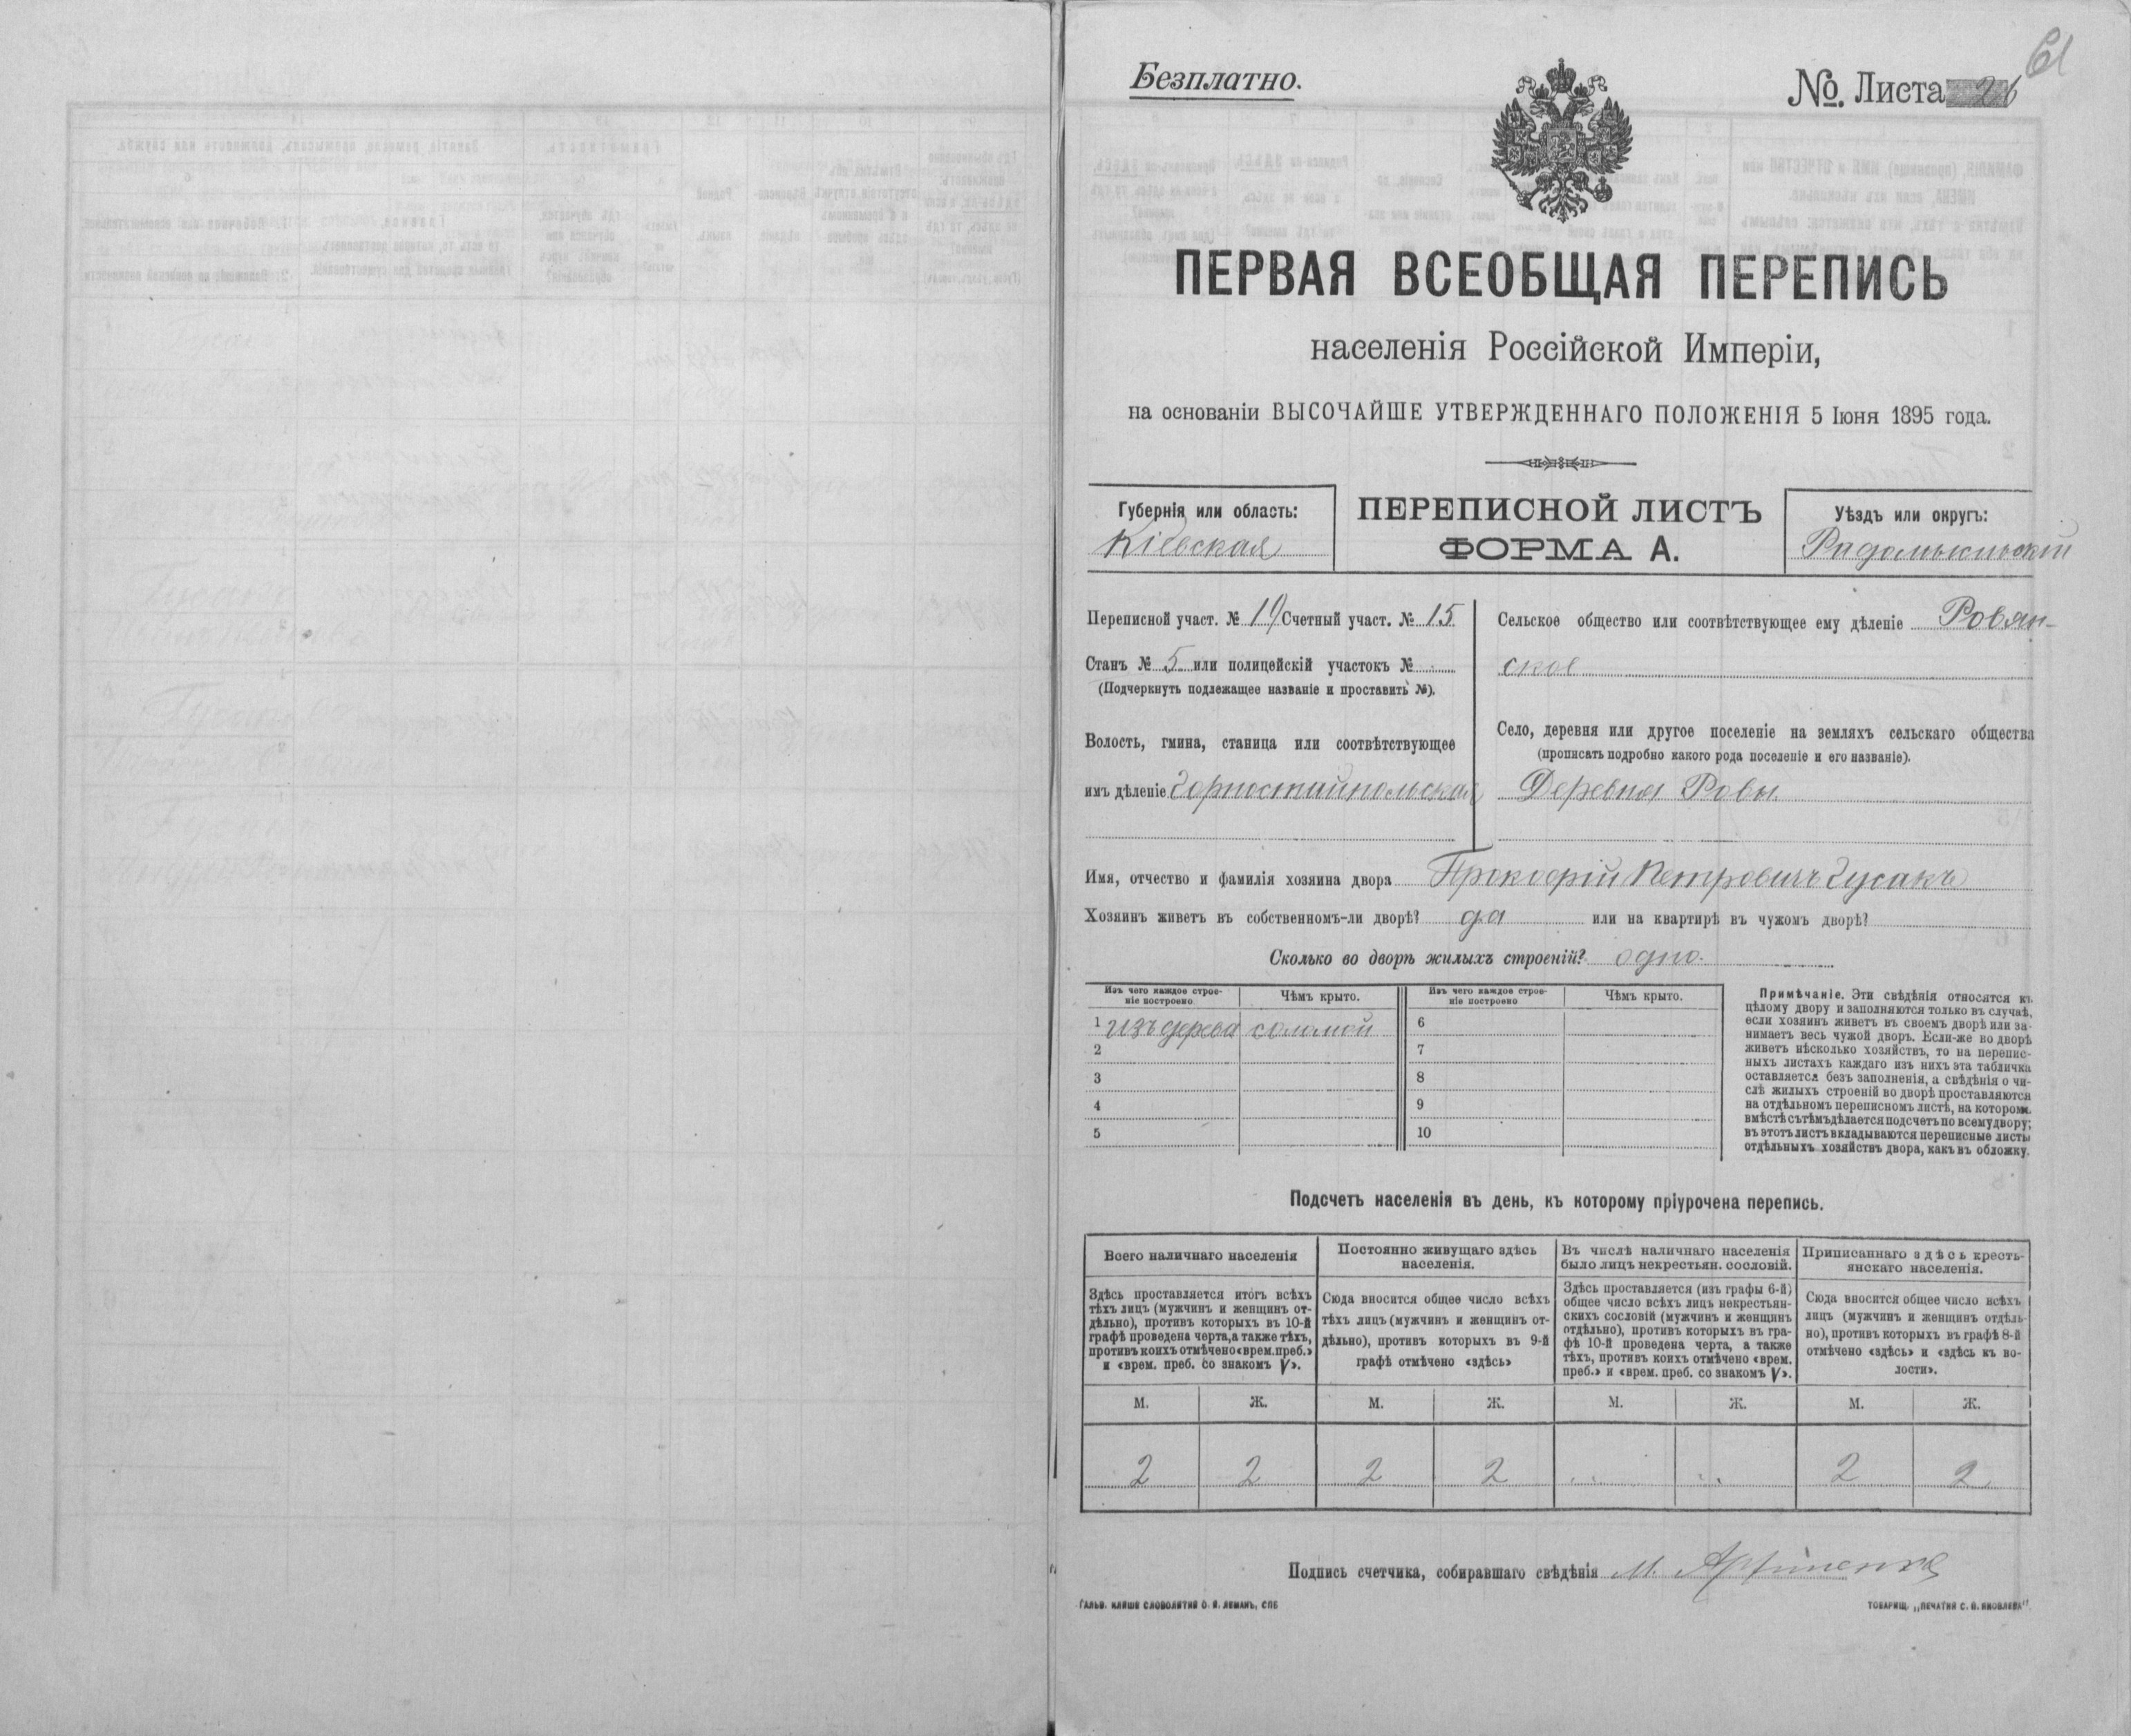 61
Безплатно.
№. Листа 26
ПЕРВАЯ ВСЕОБЩАЯ ПЕРЕПИСЬ
населенія Россійской Имперіи,
на основаніи ВЫСОЧАЙШЕ УТВЕРЖДЕННАГО ПОЛОЖЕНІЯ 5 Іюня 1895 года.
Губернія или область:
Кіевская
ПЕРЕПИСНОЙ ЛИСТЪ
ФОРМА А.
Уѣздъ или округъ:
Радомысльскій
Переписной участ. № 19 Счетный участ. № 15
Станъ № 5 или полицейскій участокъ №
(Подчеркнуть подлежащее названіе и проставить №).
Волость, гмина, станица или соотвѣтствующее
имъ дѣленіе Горностайпольская
Сельское общество или соотвѣтствующее ему дѣленіе Ровян-
ское
Село, деревня или другое поселеніе на земляхъ сельскаго общества
(прописать подробно какого рода поселеніе и его названіе).
Деревня Ровы.
Имя, отчество и фамилія хозяина двора Прокофій Петровичъ Гусакъ
Хозяинъ живетъ въ собственномъ-ли дворѣ? да или на квартирѣ въ чужомъ дворѣ?
Сколько во дворѣ жилыхъ строеній? одно.
Изъ чего каждое строе-
ніе построено
Чѣмъ крыто.
Изъ чего каждое строе-
ніе построено
Чѣмъ крыто.
1 изъ дерева соломой 6
2 7
3 8
4 9
5 10
Примѣчаніе. Эти свѣдѣнія относятся къ
цѣлому двору и заполняются только въ случаѣ,
если хозяинъ живетъ въ своемъ дворѣ или за-
нимаетъ весь чужой дворъ. Если-же во дворѣ
живетъ нѣсколько хозяйствъ, то на перепис-
ныхъ листахъ каждаго изъ нихъ эта табличка
оставляется безъ заполненія, а свѣдѣнія о чи-
слѣ жилыхъ строеній во дворѣ проставляются
на отдѣльномъ переписномъ листѣ, на которомъ
вмѣстѣ съ тѣмъ дѣлается подсчетъ по всему двору;
въ этотъ листъ вкладываются переписные листы
отдѣльныхъ хозяйствъ двора, какъ въ обложку.
Подсчетъ населенія въ день, къ которому пріурочена перепись.
Всего наличнаго населенія
Здѣсь проставляется итогъ всѣхъ
тѣхъ лицъ (мужчинъ и женщинъ от-
дѣльно), противъ которыхъ въ 10-й
графѣ проведена черта, а также тѣхъ,
противъ коихъ отмѣчено «врем. преб.»
и «врем. преб. со знакомъ V».
Постоянно живущаго здѣсь
населенія.
Сюда вносится общее число всѣхъ
тѣхъ лицъ (мужчинъ и женщинъ от-
дѣльно), противъ которыхъ въ 9-й
графѣ отмѣчено «здѣсь»
Въ числѣ наличнаго населенія
было лицъ некрестьян. сословій.
Здѣсь проставляется (изъ графы 6-й)
общее число всѣхъ лицъ некрестьян-
скихъ сословій (мужчинъ и женщинъ
отдѣльно), противъ которыхъ въ гра-
фѣ 10-й проведена черта, а также
тѣхъ, противъ коихъ отмѣчено «врем.
преб.» и «врем. преб. со знакомъ V».
Приписаннаго здѣсь кресть-
янскаго населенія.
Сюда вносится общее число всѣхъ
лицъ (мужчинъ и женщинъ отдѣль-
но), противъ которыхъ въ графѣ 8-й
отмѣчено «здѣсь» и «здѣсь къ во-
лости».
М. Ж. М. Ж. М. Ж. М. Ж.
2 2 2 2 2 2
Подпись счетчика, собиравшаго свѣдѣнія М.
ГАЛЬВ. КЛИШЕ СЛОВОЛИТНИ О. И. ЛЕМАНЪ, СПБ
ТОВАРИЩ. „ПЕЧАТНЯ С. П. ЯКОВЛЕВА".